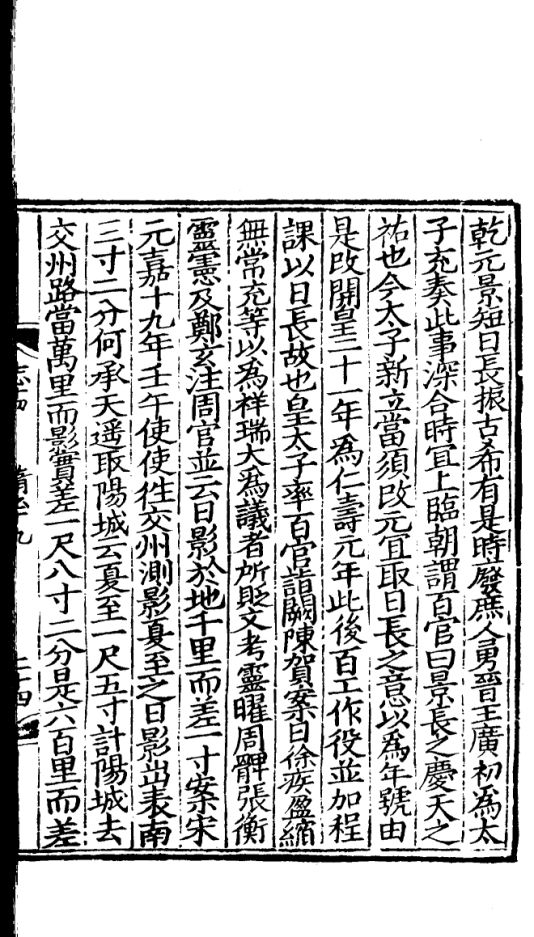 乾元景短日長振古希有是時廢庶人勇晉王廣初爲太
子充奏此事深合時宜上臨朝謂百官曰景長之慶天之
祐也今太子新立當須改元宜取日長之意以爲年號由
是改開皇二十一年爲仁壽元年此後百工作役並加程
課以日長故也皇太子率百官詣闕陳賀案日徐疾盈縮
無常充等以爲祥瑞大爲議者所貶又考靈曜周髀張衡
靈憲及鄭玄注周官並云日影於地千里而差一寸案宋
元嘉十九年壬午使使往交州測影夏至之日影出表南
三寸二分何承天遥取陽城云夏至一尺五寸計陽城去
交州路當萬里而影實差一尺八寸二分是六百里而差
志十四 隋志九 二十四